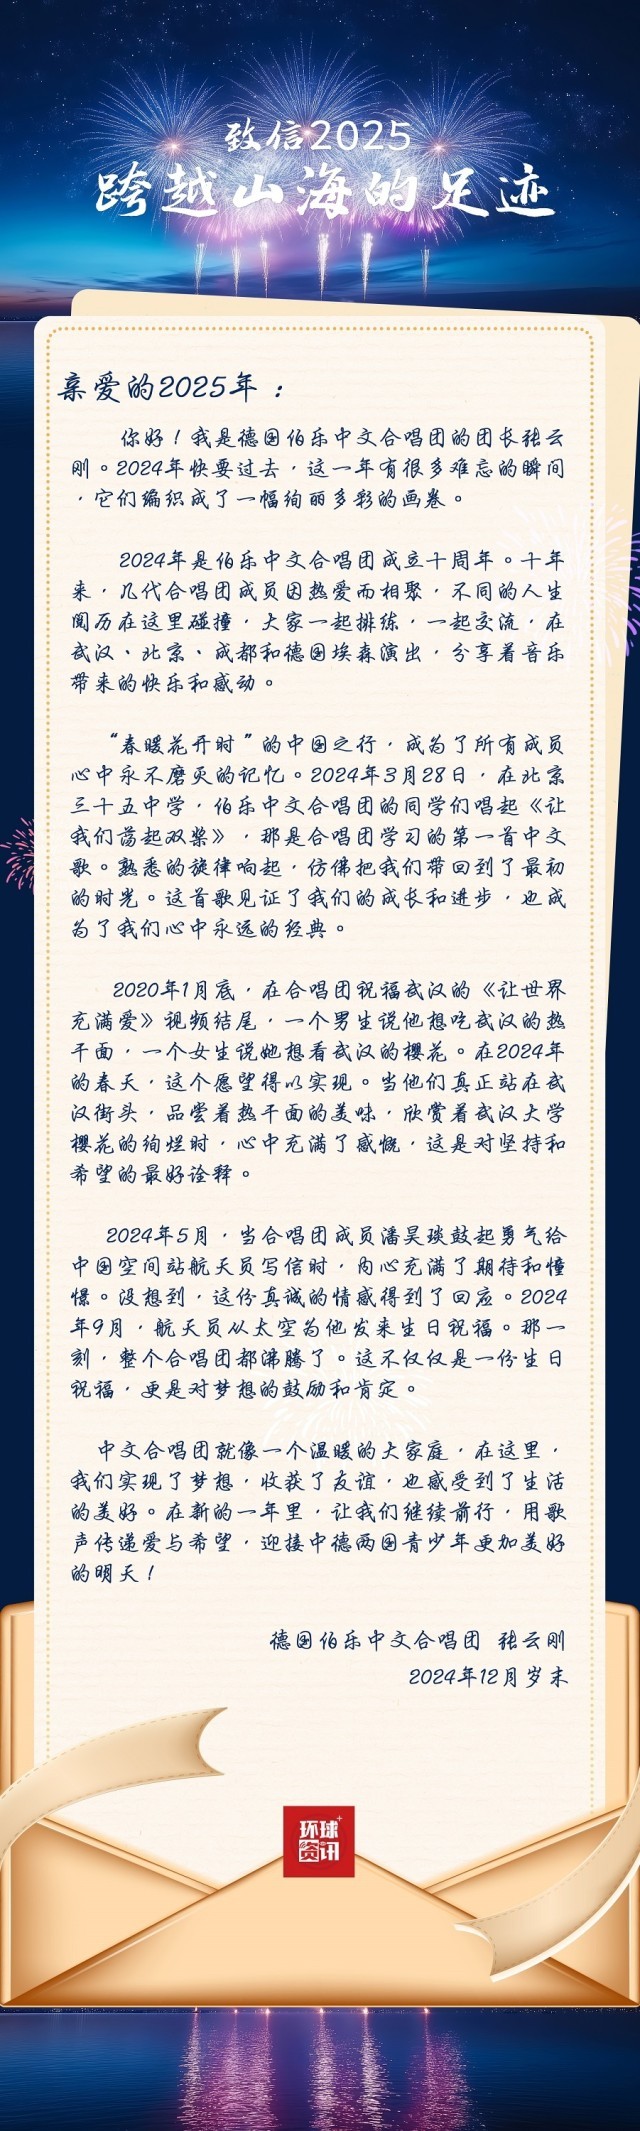 致信2025
跨越山海的足迹
亲爱的2025年：
你好！我是德国伯乐中文合唱团的团长张云
刚。2024年快要过去，这一年有很多难忘的瞬间
，它们编织成了一幅绚丽多彩的画卷。
2024年是伯乐中文合唱团成立十周年。十年
来，几代合唱团成员因热爱而相聚，不同的人生
阅历在这里碰撞，大家一起排练，一起交流，在
武汉、北京、成都和德国埃森演出，分享着音乐
带来的快乐和感动。
“春暖花开时”的中国之行，成为了所有成员
心中永不磨灭的记忆。2024年3月28日，在北京
三十五中学，伯乐中文合唱团的同学们唱起《让
我们荡起双桨》，那是合唱团学习的第一首中文
歌。熟悉的旋律响起，仿佛把我们带回到了最初
的时光。这首歌见证了我们的成长和进步，也成
为了我们心中永远的经典。
2020年1月底，在合唱团祝福武汉的《让世界
充满爱》视频结尾，一个男生说他想吃武汉的热
干面，一个女生说她想看武汉的樱花。在2024年
的春天，这个愿望得以实现。当他们真正站在武
汉街头，品尝着热干面的美味，欣赏着武汉大学
樱花的绚烂时，心中充满了感慨，这是对坚持和
希望的最好诠释。
2024年5月，当合唱团成员潘昊琰鼓起勇气给
中国空间站航天员写信时，内心充满了期待和憧
憬。没想到，这份真诚的情感得到了回应。2024
年9月，航天员从太空为他发来生日祝福。那一
刻，整个合唱团都沸腾了。这不仅仅是一份生日
祝福，更是对梦想的鼓励和肯定。
中文合唱团就像一个温暖的大家庭，在这里，
我们实现了梦想，收获了友谊，也感受到了生活
的美好。在新的一年里，让我们继续前行，用歌
声传递爱与希望，迎接中德两国青少年更加美好
的明天！
德国伯乐中文合唱团 张云刚
2024年12月岁末
环球
资讯+